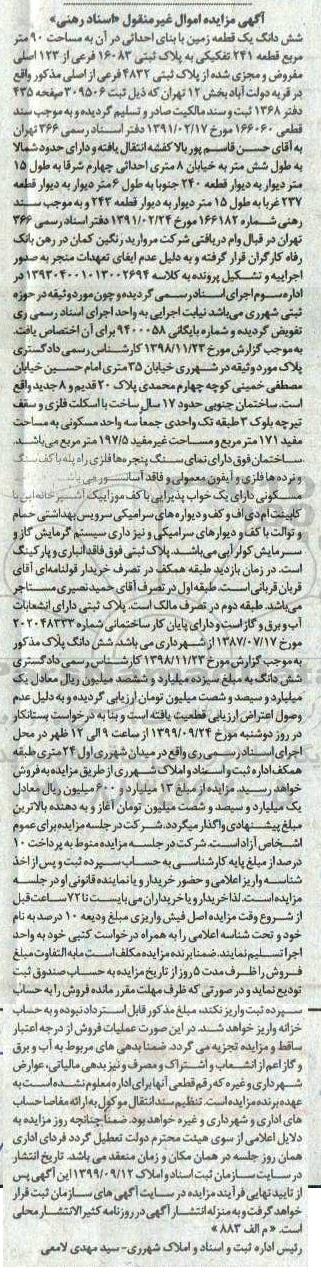 آگهی مزایده اموال غیر منقول «اسناد رهنی»
شش دانگ یک قطعه زمین با بنای احداثی در آن به مساحت ۹۰ متر
مربع قطعه ۲۴۱ تفکیکی به پلاک ثبتی ۱۶۰۸۳ فرعی از ۱۲۳ اصلی
مفروض و مجزی شده از پلاک ثبتی ۴۸۳۲ فرعی از اصلی مذکور واقع
در قریه دولت آباد بخش ۱۲ تهران که ذیل ثبت ۳۰۹۵۰۶ صفحه ۴۳۵
دفتر ۱۳۶۸ ثبت و سند مالکیت صادر و تسلیم گردیده و به موجب سند
قطعی ۱۶۶۰۶۰ مورخ ۱۳۹۱/۰۲/۱۷ دفتر اسناد رسمی ۳۶۶ تهران
به آقای حسن قاسم پور بالا کفشه انتقال یافته و دارای حدود شمالا
به طول شش متر به خیابان ۸ متری احداثی چهارم شرقا به طول ۱۵
متر دیوار به دیوار قطعه ۲۴۰ جنوبا به طول ۶ متر دیوار به دیوار قطعه
۲۳۷ غربا به طول ۱۵ متر دیوار به دیوار قطعه ۲۴۳ و به موجب سند
رهنی شماره ۱۶۶۱۸۲ مورخ ۱۳۹۱/۰۲/۲۴ دفتر اسناد رسمی ۳۶۶
تهران در قبال وام دریافتی شرکت مروارید رنگین کمان در رهن بانک
رفاه کارگران قرار گرفته و به دلیل عدم ایفای تعهدات منجر به صدور
اجراییه و تشکیل پرونده به کلاسه ۱۳۹۳۰۴۰۰۱۰۱۳۰۰۲۶۹۴ در
اداره سوم اجرای اسناد رسمی گردیده و چون مورد وثیقه در حوزه
ثبتی شهرری می باشد نیابت اجرایی به واحد اجرای اسناد رسمی ری
تفویض گردیده و شماره بایگانی ۹۴۰۰۰۵۸ برای آن اختصاص یافت.
به موجب گزارش مورخ ۱۳۹۸/۱۱/۲۳ کارشناس رسمی دادگستری
پلاک مورد وثیقه در شهرری خیابان ۳۵ متری امام حسین خیابان
مصطفی خمینی کوچه چهارم محمدی پلاک ۲۰ قدیم و ۸ جدید واقع
است. ساختمان جنوبی حدود ۱۷ سال ساخت با اسکلت فلزی و سقف
تیرچه بلوک ۳ طبقه تک واحدی جمعاً سه واحد مسکونی به مساحت
مفید ۱۷۱ متر مربع و مساحت غیر مفید ۱۹۷/۵ متر مربع می باشد.
ساختمان فوق دارای نمای سنگ پنجره ها فلزی راه پله با کف سنگ
و نرده ها فلزی و آیفون معمولی و فاقد آسانسور می باشد
مسکونی دارای یک خواب پذیرایی با کف موزاییک آشپزخانه اپن با
کابینت ام دی اف و کف و دیواره های سرامیکی سرویس بهداشتی حمام
و توالت با کف و دیوارهای سرامیکی و نیز داری سیستم گرمایش گاز و
سرمایش کولر آبی می باشد. پلاک ثبتی فوق فاقد انباری و پارکینگ
است. در زمان بازدید طبقه همکف در تصرف خریدار قولنامه ای آقای
قربان قربانی است. طبقه اول در تصرف آقای حمید نصیری مستاجر
می باشد. طبقه دوم در تصرف مالک است. پلاک ثبتی دارای انشعابات
آب و برق و گاز است و دارای پایان کار ساختمانی شماره ۲۰۲۰۴۸۳۳۳
مورخ ۱۳۸۷/۰۷/۱۷ از شهرداری می باشد. شش دانگ پلاک مذکور
به موجب گزارش مورخ ۱۳۹۸/۱۱/۲۳ کارشناس رسمی دادگستری
شش دانگ به مبلغ سیزده میلیارد و ششصد میلیون ریال معادل یک
میلیارد و سیصد و شصت میلیون تومان ارزیابی گردیده و به دلیل عدم
وصول اعتراض ارزیابی قطعیت یافته است و بنا به درخواست بستانکار
در روز دوشنبه مورخ ۱۳۹۹/۰۹/۲۴ از ساعت ۹ الی ۱۲ ظهر در محل
اجرای اسناد رسمی ری واقع در میدان شهرری اول ۲۴ متری طبقه
همکف اداره ثبت و اسناد و املاک شهرری از طریق مزایده به فروش
خواهد رسید. مزایده از مبلغ ۱۳ میلیارد و ۶۰۰ میلیون ریال معادل
یک میلیارد و سیصد و شصت میلیون تومان آغاز و به دهنده بالاترین
مبلغ پیشنهادی واگذار میگردد. شرکت در جلسه مزایده برای عموم
اشخاص آزاد است. شرکت در جلسه مزایده منوط به پرداخت ۱۰
درصد از مبلغ پایه کارشناسی به حساب سپرده ثبت و پس از اخذ
شناسه واریز اعلامی و حضور خریدار و یا نماینده قانونی او در جلسه
مزایده است. لذا خریدار و یا خریداران می بایست تا ۷۲ ساعت قبل
از شروع وقت مزایده اصل فیش واریزی مبلغ ودیعه ۱۰ درصد به نام
خود و تحت شناسه اعلامی را به همراه درخواست کتبی خود به واحد
اجرا تسلیم نمایند. ضمنا برنده مزایده مکلف است مابه التفاوت مبلغ
فروش را ظرف مدت ۵ روز از تاریخ مزایده به حساب صندوق ثبت
تودیع نماید و در صورتی که ظرف مهلت مقرر مانده فروش را به حساب
سپرده ثبت واریز نکند، مبلغ مذکور قابل استرداد نبوده و به حساب
خزانه واریز خواهد شد. در این صورت عملیات فروش از درجه اعتبار
ساقط و مزایده تجزیه می گردد. ضمنا بدهی های مربوط به آب و برق
و گاز اعم از انشعاب و اشتراک و مصرف و نیز بدهی مالیاتی، عوارض
شهرداری و غیره که رقم قطعی آنها برای اداره معلوم نشده است به
عهده برنده مزایده است. تنظیم سند انتقال موکول به ارائه مفاصا حساب
های اداری و شهرداری و غیره خواهد بود. ضمنا چنانچه روز مزایده به
دلایل اعلامی از سوی هیئت محترم دولت تعطیل گردد فردای اداری
همان روز جلسه در همان مکان و زمان منعقد می باشد. تاریخ انتشار
در سایت سازمان ثبت اسناد و املاک ۱۳۹۹/۰۹/۱۲ این آگهی پس
از تایید نهایی فرآیند مزایده در سایت آگهی های سازمان ثبت قرار
خواهد گرفت و به منزله انتشار آگهی در روزنامه کثیرالانتشار محلی
است. « م الف ۸۸۳ »
رئیس اداره ثبت و اسناد و املاک شهرری- سید مهدی لامعی